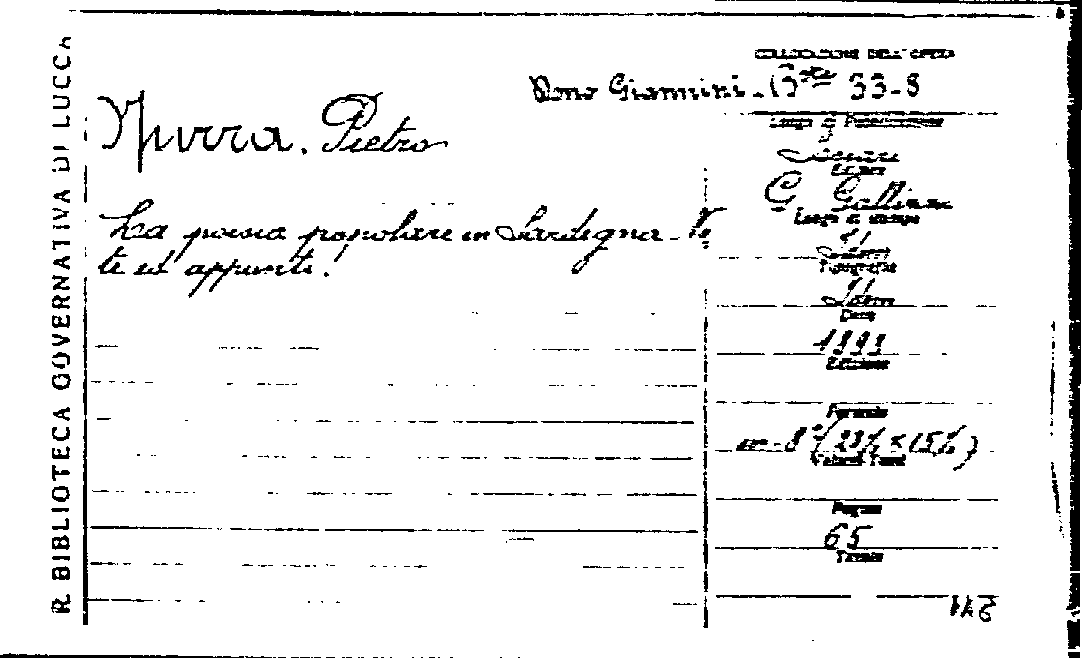 R. BIBLIOTECA GOVERNATIVA DI LUCCA
COLLOCAZIONE DELL'OPERA
Dono Giannini - B.sta 33-8
Nurra, Pietro
La poesia popolare in Sardegna - No
te ed appunti.
Luogo di Pubblicazione
Sassari
Editore
G. Gallizzi
Luogo di stampa
Idem
Tipografia
Idem
Data
1893
Edizione
Formato
in-8°
Volumi-Tomi
Pagine
65
Tavole